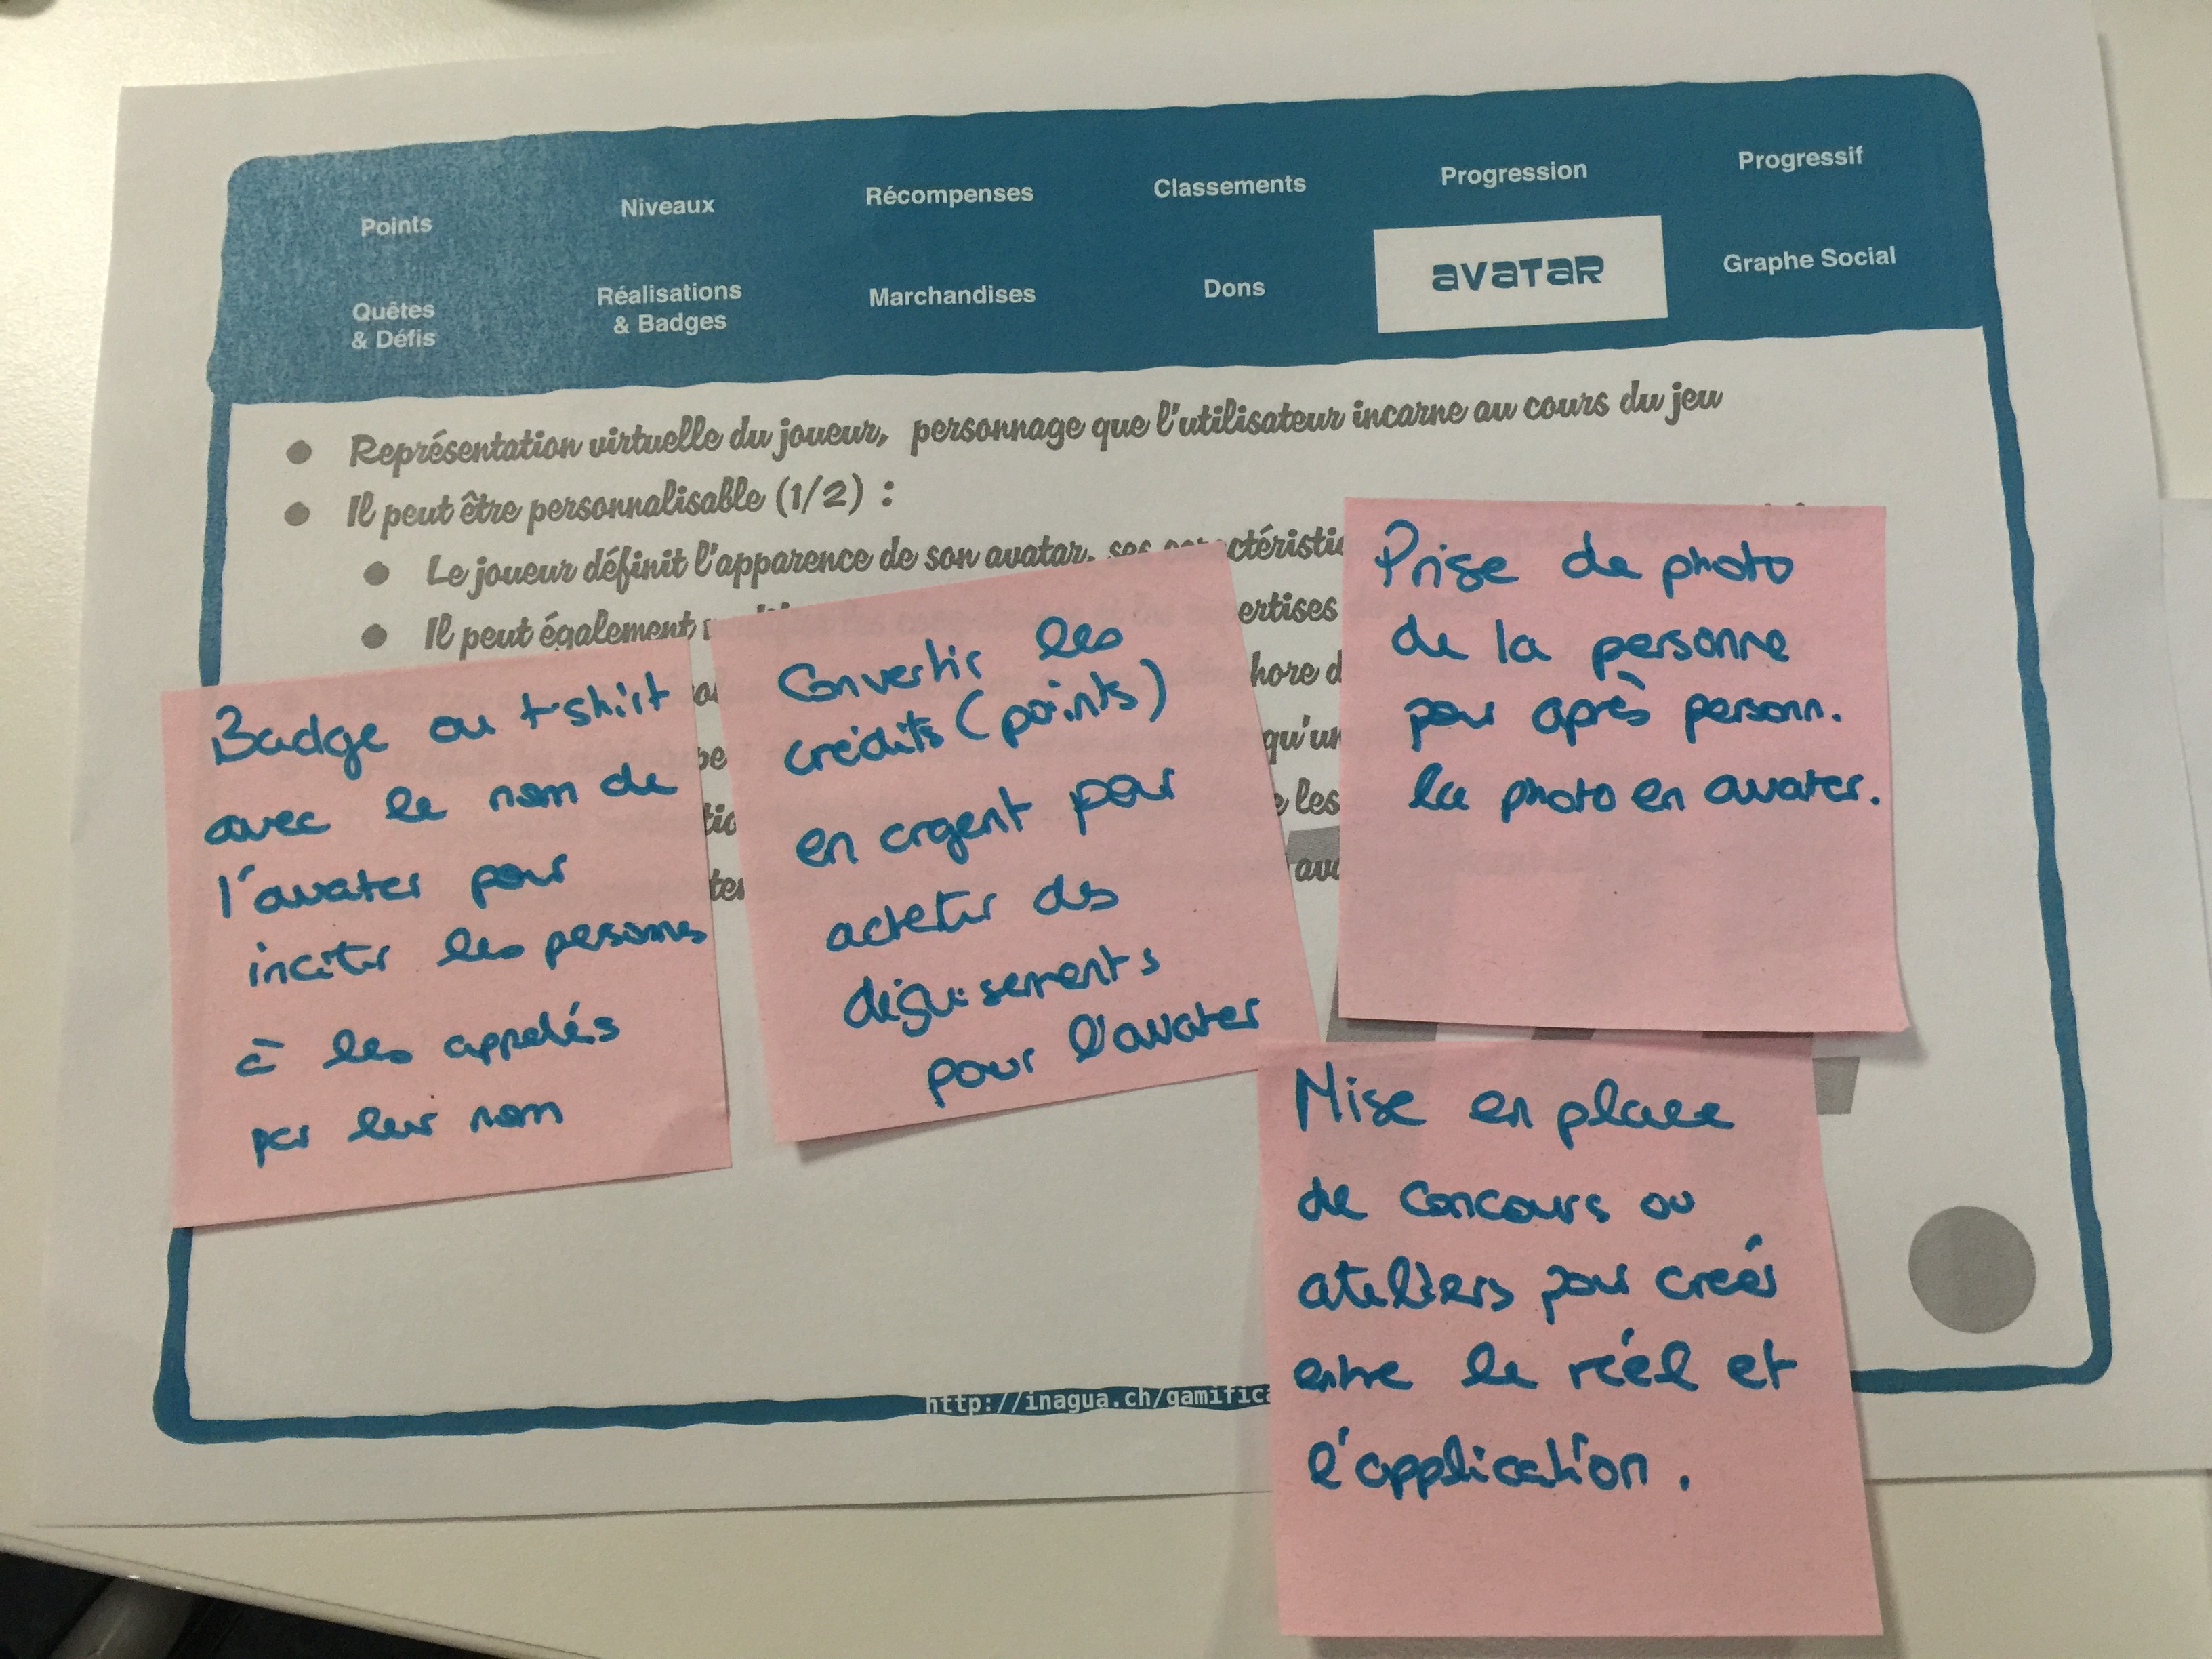 Points
Niveaux
Récompenses
Classements
Progression
Progressif
Quêtes
& Défis
Réalisations
& Badges
Marchandises
Dons
AVATAR
Graphe Social
Représentation virtuelle du joueur, personnage que l'utilisateur incarne au cours du jeu
Il peut être personnalisable (1/2) :
Le joueur définit l'apparence de son avatar, ses
Il peut également
Badge ou t-shirt
avec le nom de
l'avater pour
inciter les
à les appelés
par leur nom
Convertir les
crédits (points)
en argent pour
des
déguisements
pour l'avater
Prise de photo
de la personne
pour après personn.
la photo en avater.
Mise en place
de concours ou
ateliers pour créer
entre le réel et
l'application.
http://inagua.ch/gamifica